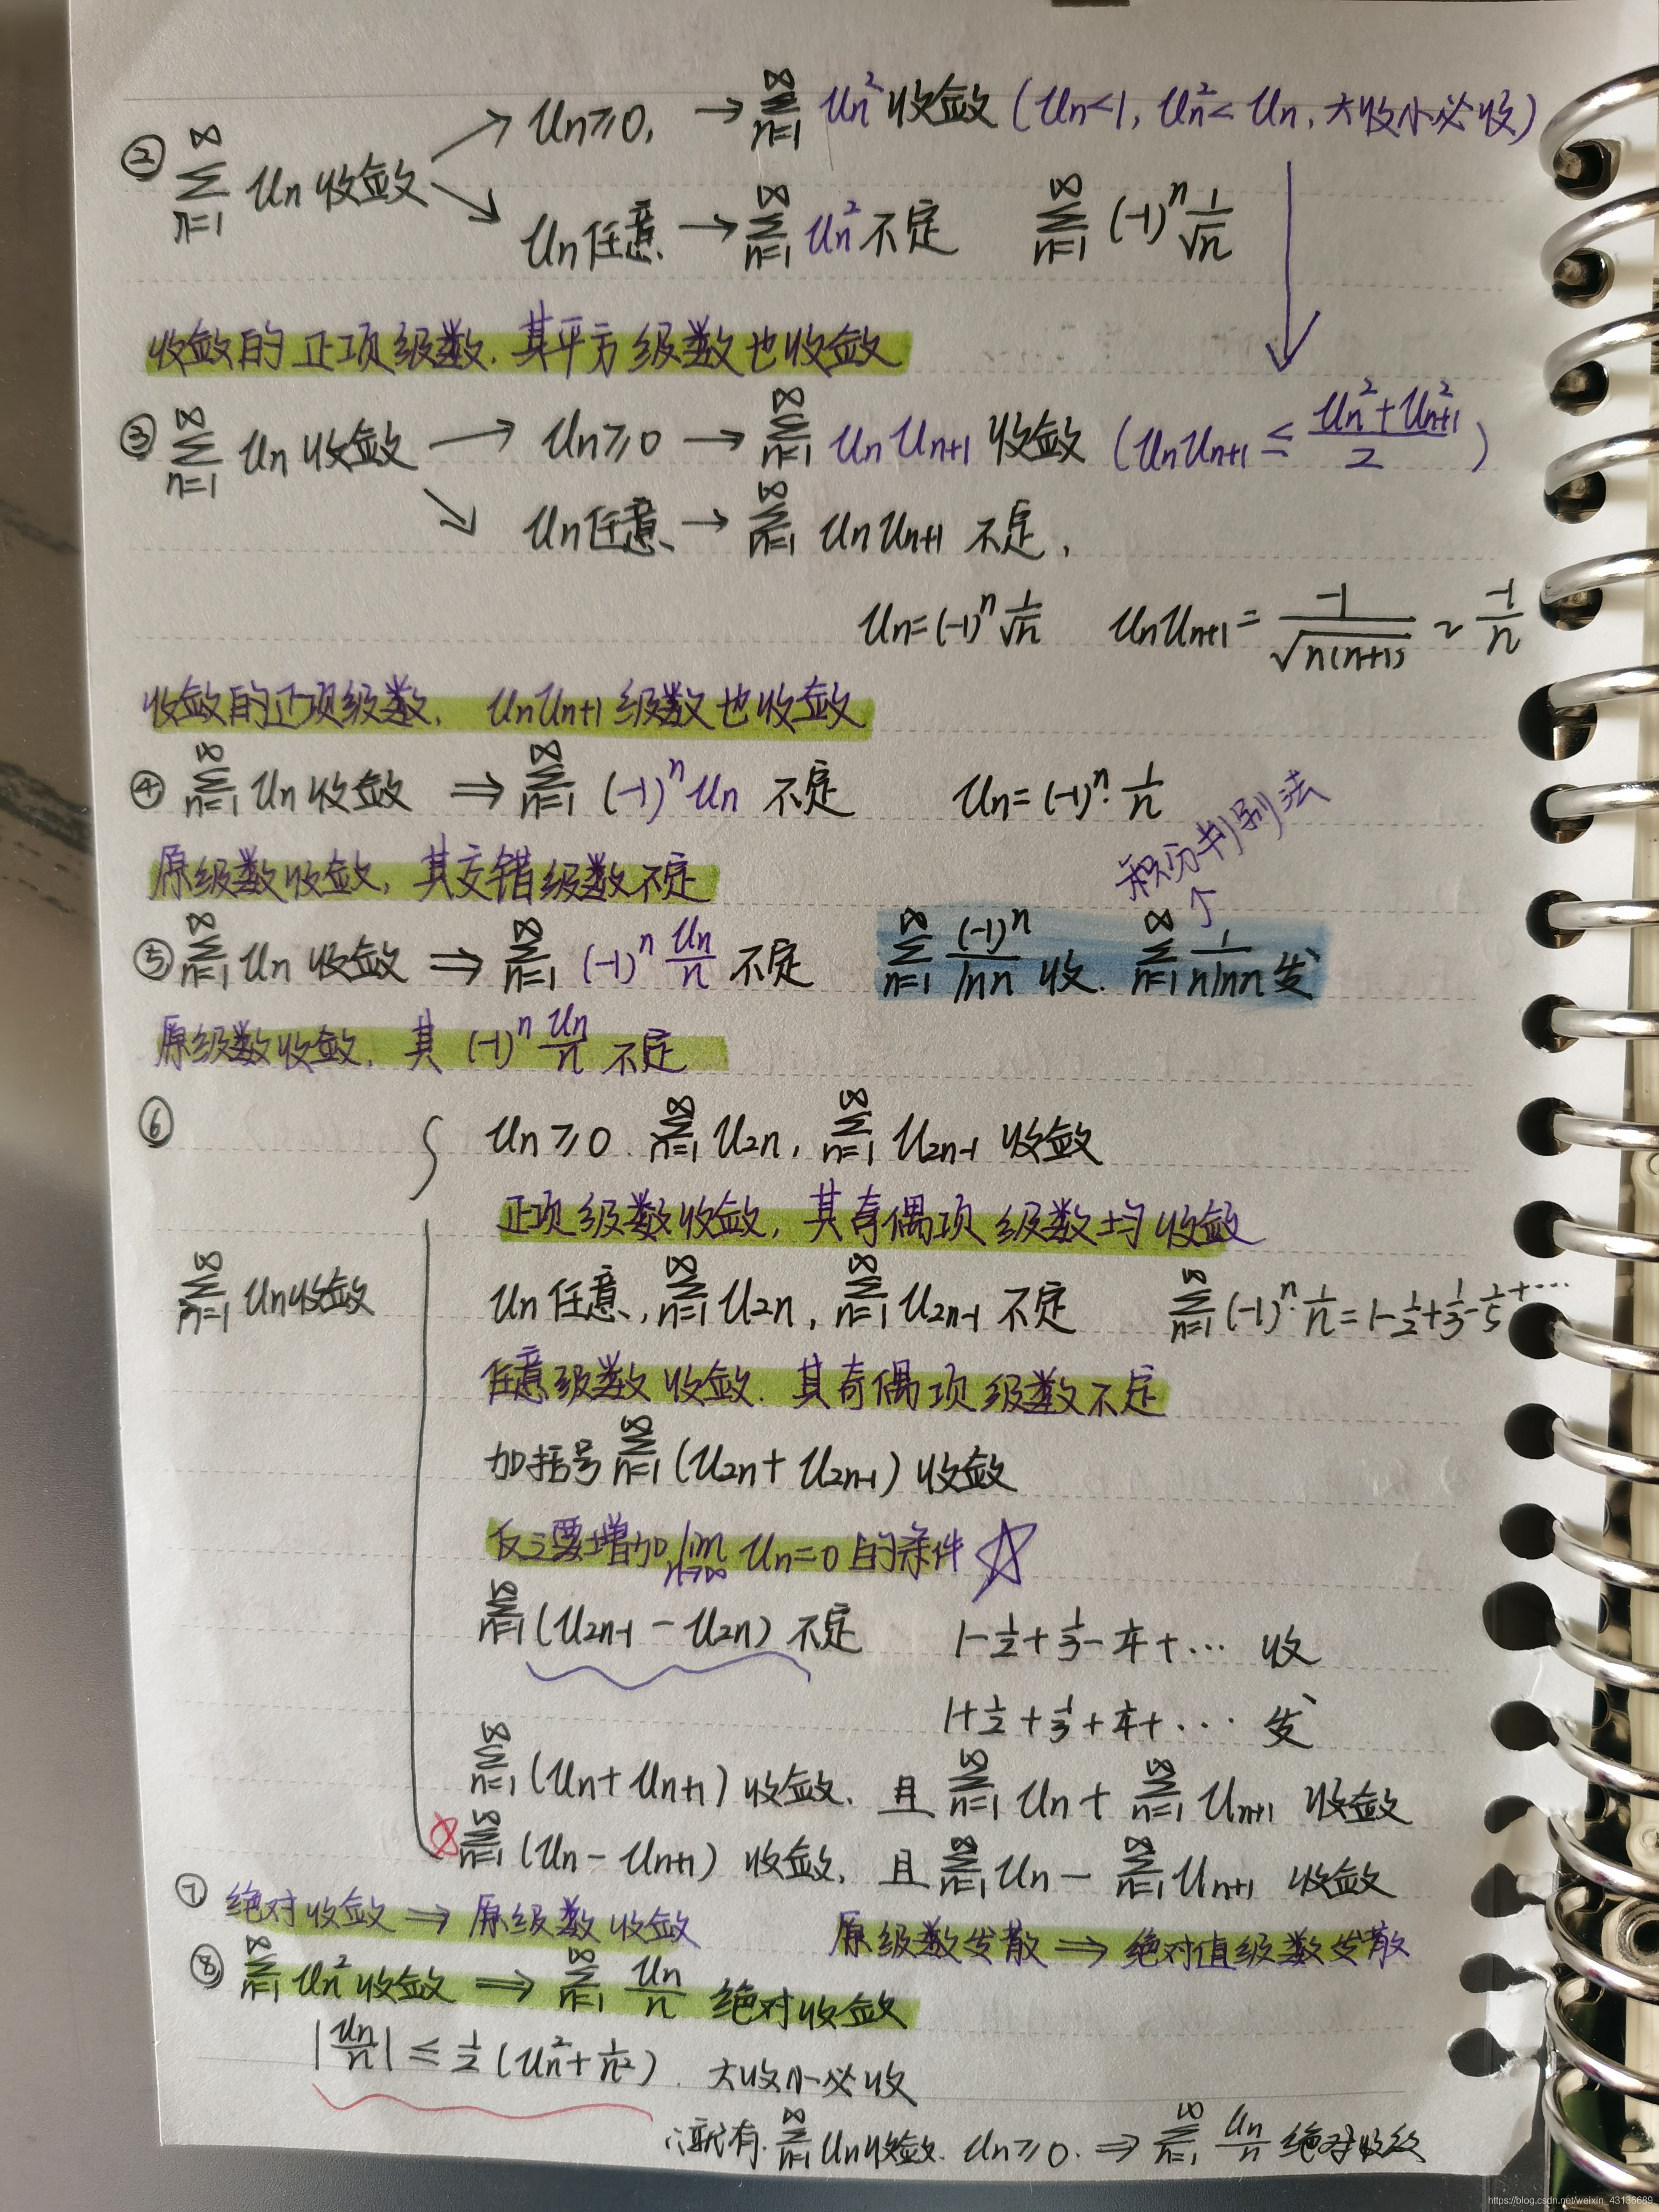 ② ∑_{n=1}^{∞} Un 收敛 ↗ Un≥0, → ∑_{n=1}^{∞} Un² 收敛 (Un<1, Un²<Un, 大收小必收)
↘ Un任意 → ∑_{n=1}^{∞} Un² 不定 ∑_{n=1}^{∞} (-1)^n 1/√n
收敛的正项级数. 其平方级数也收敛
③ ∑_{n=1}^{∞} Un 收敛 → Un≥0 → ∑_{n=1}^{∞} UnUn+1 收敛 (UnUn+1 ≤ (Un²+Un+1²)/2)
↘ Un任意 → ∑_{n=1}^{∞} UnUn+1 不定,
Un=(-1)^n 1/√n UnUn+1 = -1/√(n(n+1)) ~ -1/n
收敛的正项级数, UnUn+1 级数也收敛
④ ∑_{n=1}^{∞} Un 收敛 ⇒ ∑_{n=1}^{∞} (-1)^n Un 不定 Un=(-1)^n·1/n
积分判别法
↑
原级数收敛, 其交错级数不定
⑤ ∑_{n=1}^{∞} Un 收敛 ⇒ ∑_{n=1}^{∞} (-1)^n Un/n 不定 ∑_{n=1}^{∞} (-1)^n/lnn 收. ∑_{n=1}^{∞} 1/(nlnn) 发
原级数收敛, 其 (-1)^n Un/n 不定
⑥ Un≥0. ∑_{n=1}^{∞} U2n, ∑_{n=1}^{∞} U2n-1 收敛
正项级数收敛, 其奇偶项级数均收敛
∑_{n=1}^{∞} Un收敛
Un任意, ∑_{n=1}^{∞} U2n, ∑_{n=1}^{∞} U2n-1 不定 ∑_{n=1}^{∞} (-1)^n·1/n = 1-1/2+1/3-1/5+···
任意级数收敛. 其奇偶项级数不定
加括号 ∑_{n=1}^{∞} (U2n+U2n-1) 收敛
反之要增加 lim_{n→∞} Un=0 的条件 ☆
∑_{n=1}^{∞} (U2n-1 - U2n) 不定 1-1/2+1/3-1/4+··· 收
1+1/2+1/3+1/4+··· 发
∑_{n=1}^{∞} (Un+Un+1) 收敛. 且 ∑_{n=1}^{∞} Un + ∑_{n=1}^{∞} Un+1 收敛
∑_{n=1}^{∞} (Un-Un+1) 收敛, 且 ∑_{n=1}^{∞} Un - ∑_{n=1}^{∞} Un+1 收敛
⑦ 绝对收敛 ⇒ 原级数收敛 原级数发散 ⇒ 绝对值级数发散
⑧ ∑_{n=1}^{∞} Un² 收敛 ⇒ ∑_{n=1}^{∞} Un/n 绝对收敛
|Un/n| ≤ 1/2 (Un²+1/n²). 大收小必收
就有. ∑_{n=1}^{∞} Un收敛. Un≥0. ⇒ ∑_{n=1}^{∞} Un/n 绝对收敛
https://blog.csdn.net/weixin_43136689